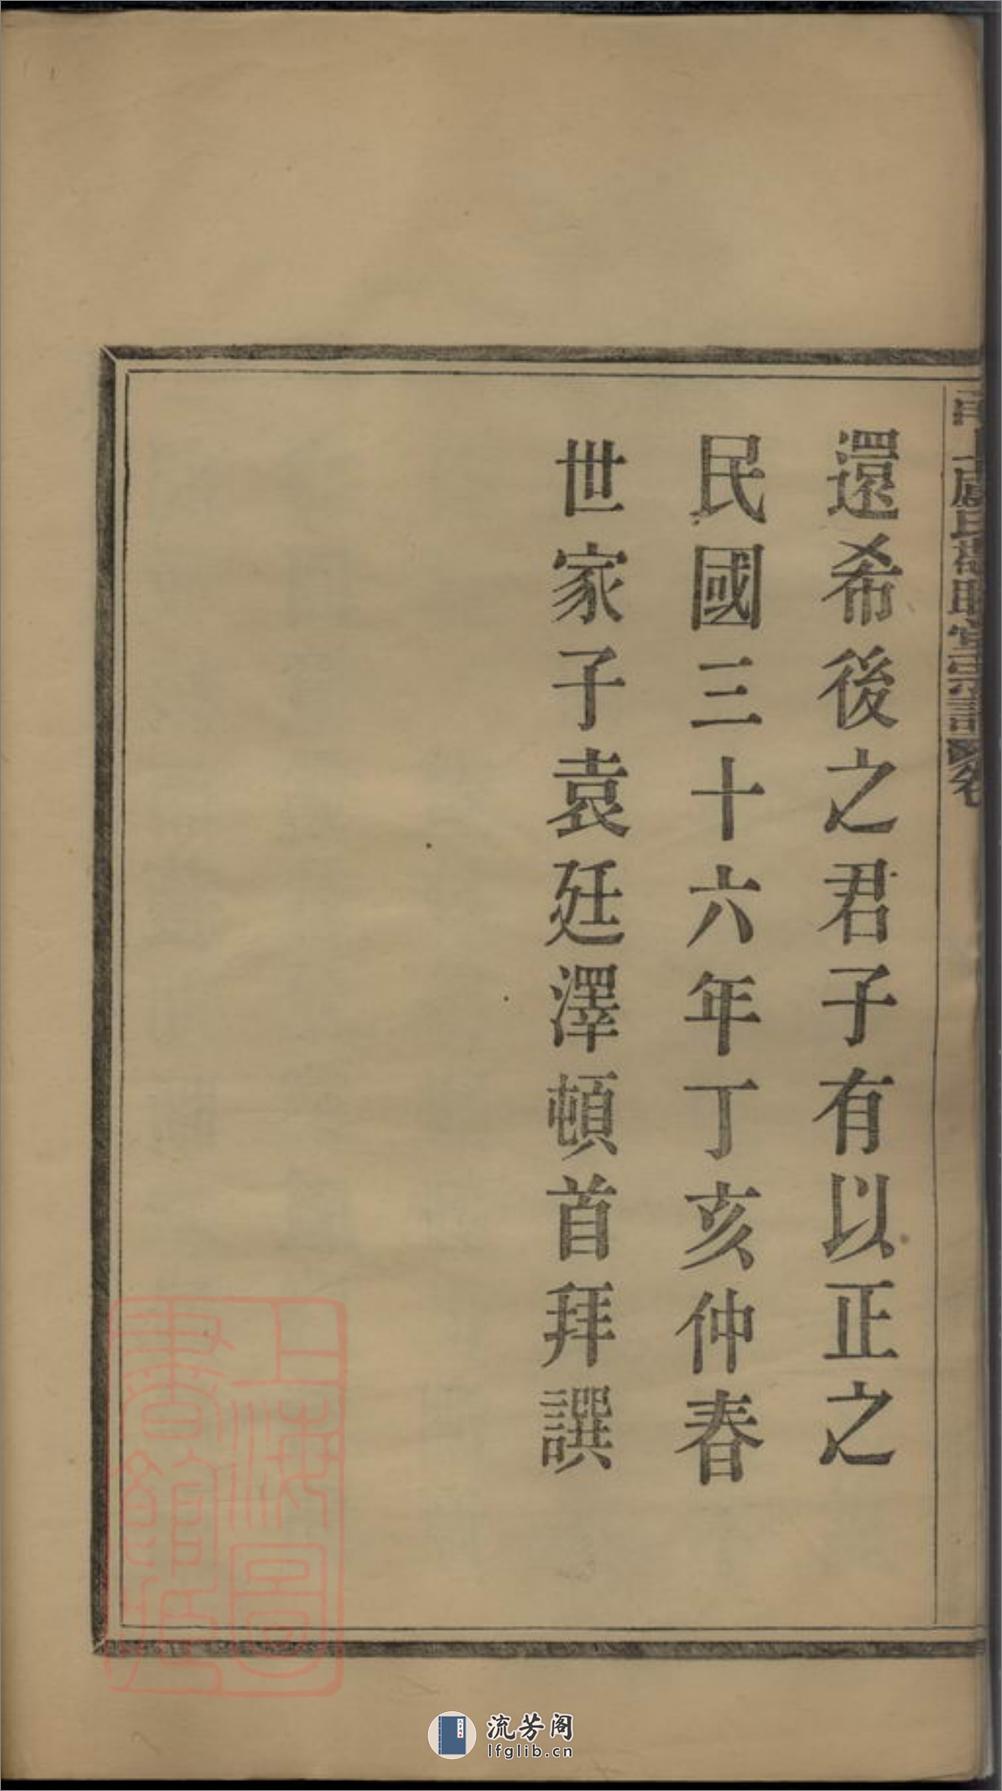 還希後之君子有以正之
民國三十六年丁亥仲春
世家子袁廷澤頓首拜譔
上海圖
書館藏
流芳阁
lfglib.cn